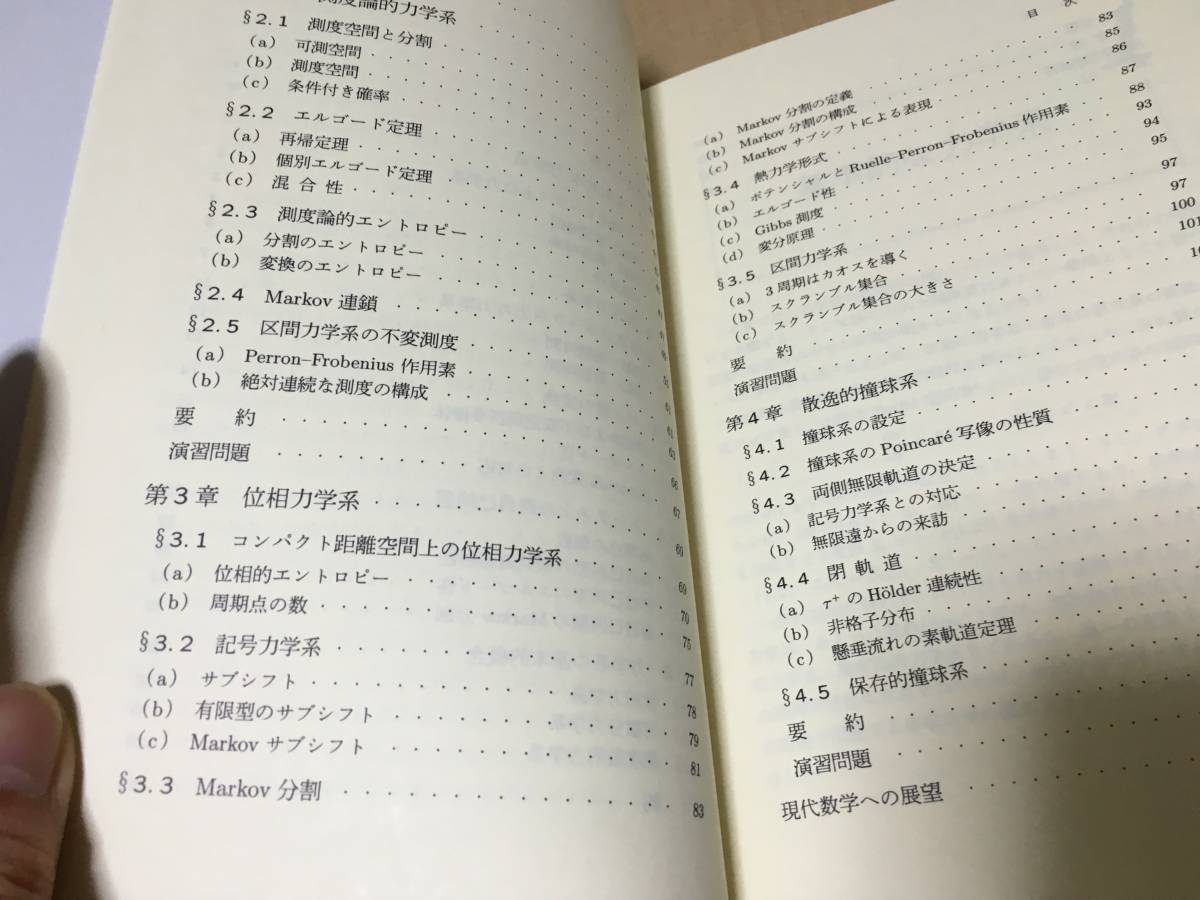 測度論的力学系
§2.1 測度空間と分割
(a) 可測空間
(b) 測度空間
(c) 条件付き確率
§2.2 エルゴード定理
(a) 再帰定理
(b) 個別エルゴード定理
(c) 混合性
§2.3 測度論的エントロピー
(a) 分割のエントロピー
(b) 変換のエントロピー
§2.4 Markov 連鎖
§2.5 区間力学系の不変測度
(a) Perron–Frobenius 作用素
(b) 絶対連続な測度の構成
要 約 61
演習問題 63
66
第3章 位相力学系 67
§3.1 コンパクト距離空間上の位相力学系 69
(a) 位相的エントロピー 69
(b) 周期点の数 70
75
§3.2 記号力学系
(a) サブシフト 77
(b) 有限型のサブシフト 78
(c) Markov サブシフト 79
81
§3.3 Markov 分割 83
目 次
(a) Markov 分割の定義 83
(b) Markov 分割の構成 85
(c) Markov サブシフトによる表現 86
§3.4 熱力学形式 87
(a) ポテンシャルと Ruelle–Perron–Frobenius 作用素 88
(b) エルゴード性 93
(c) Gibbs 測度 94
(d) 変分原理 95
§3.5 区間力学系 97
(a) 3周期はカオスを導く 97
(b) スクランブル集合 100
(c) スクランブル集合の大きさ 101
要 約
演習問題
第4章 散逸的撞球系
§4.1 撞球系の設定
§4.2 撞球系の Poincaré 写像の性質
§4.3 両側無限軌道の決定
(a) 記号力学系との対応
(b) 無限遠からの来訪
§4.4 閉軌道
(a) τ⁺ の Hölder 連続性
(b) 非格子分布
(c) 懸垂流れの素軌道定理
§4.5 保存的撞球系
要 約
演習問題
現代数学への展望